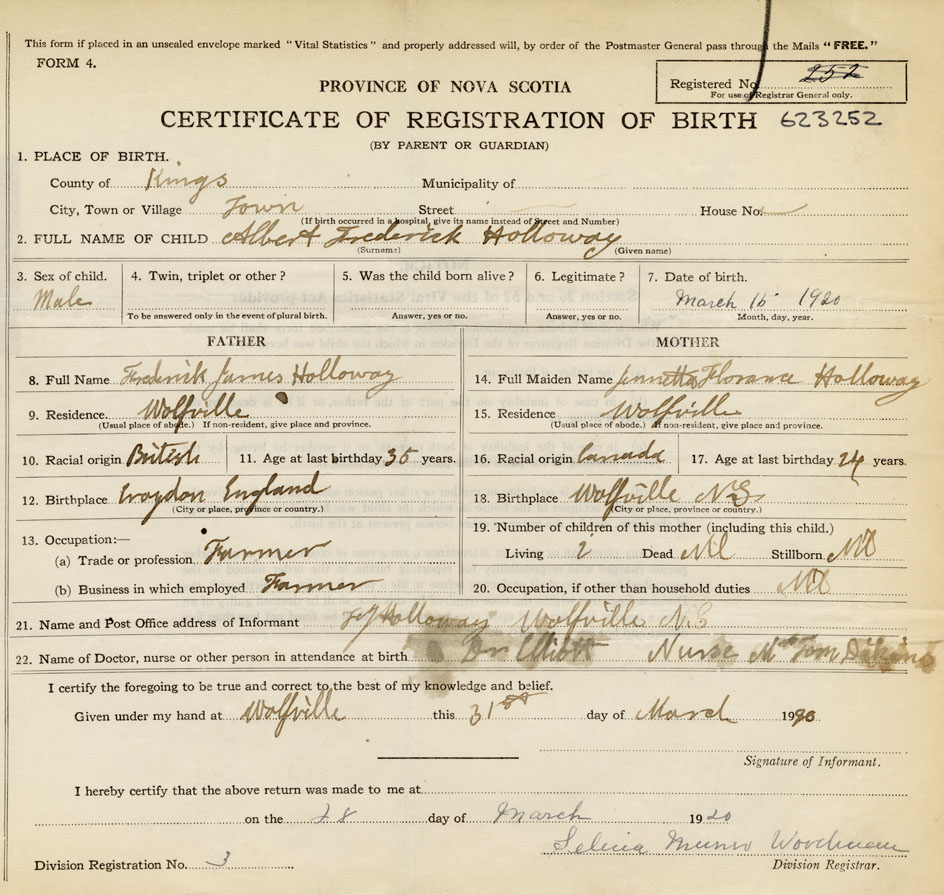 This form if placed in an unsealed envelope marked "Vital Statistics" and properly addressed will, by order of the Postmaster General pass through the Mails "FREE."
FORM 4.
PROVINCE OF NOVA SCOTIA
Registered No. 252
For use of Registrar General only.
CERTIFICATE OF REGISTRATION OF BIRTH 623252
(BY PARENT OR GUARDIAN)
1. PLACE OF BIRTH.
County of Kings Municipality of
City, Town or Village Town Street House No.
(If birth occurred in a hospital, give its name instead of Street and Number)
2. FULL NAME OF CHILD Albert Frederick Holloway
(Surname) (Given name)
3. Sex of child. 4. Twin, triplet or other? 5. Was the child born alive? 6. Legitimate? 7. Date of birth.
Male March 15 1920
To be answered only in the event of plural birth. Answer, yes or no. Answer, yes or no. Month, day, year.
FATHER MOTHER
8. Full Name Frederick James Holloway 14. Full Maiden Name Jennetta Florance Holloway
9. Residence. Wolfville 15. Residence Wolfville
(Usual place of abode.) If non-resident, give place and province. (Usual place of abode.) If non-resident, give place and province.
10. Racial origin British 11. Age at last birthday 35 years. 16. Racial origin Canada 17. Age at last birthday 24 years.
12. Birthplace Croydon England 18. Birthplace Wolfville N.S.
(City or place, province or country.) (City or place, province or country.)
19. Number of children of this mother (including this child.)
13. Occupation:—
(a) Trade or profession Farmer Living 2 Dead Nil Stillborn Nil
(b) Business in which employed Farmer 20. Occupation, if other than household duties Nil
21. Name and Post Office address of Informant F J Holloway Wolfville N.S
22. Name of Doctor, nurse or other person in attendance at birth Dr Elliott Nurse Mrs Tom Dikins
I certify the foregoing to be true and correct to the best of my knowledge and belief.
Given under my hand at Wolfville this 31st day of March 1920
Signature of Informant.
I hereby certify that the above return was made to me at
on the 28 day of March 1920
Selina Munro Woodman
Division Registration No. 3 Division Registrar.